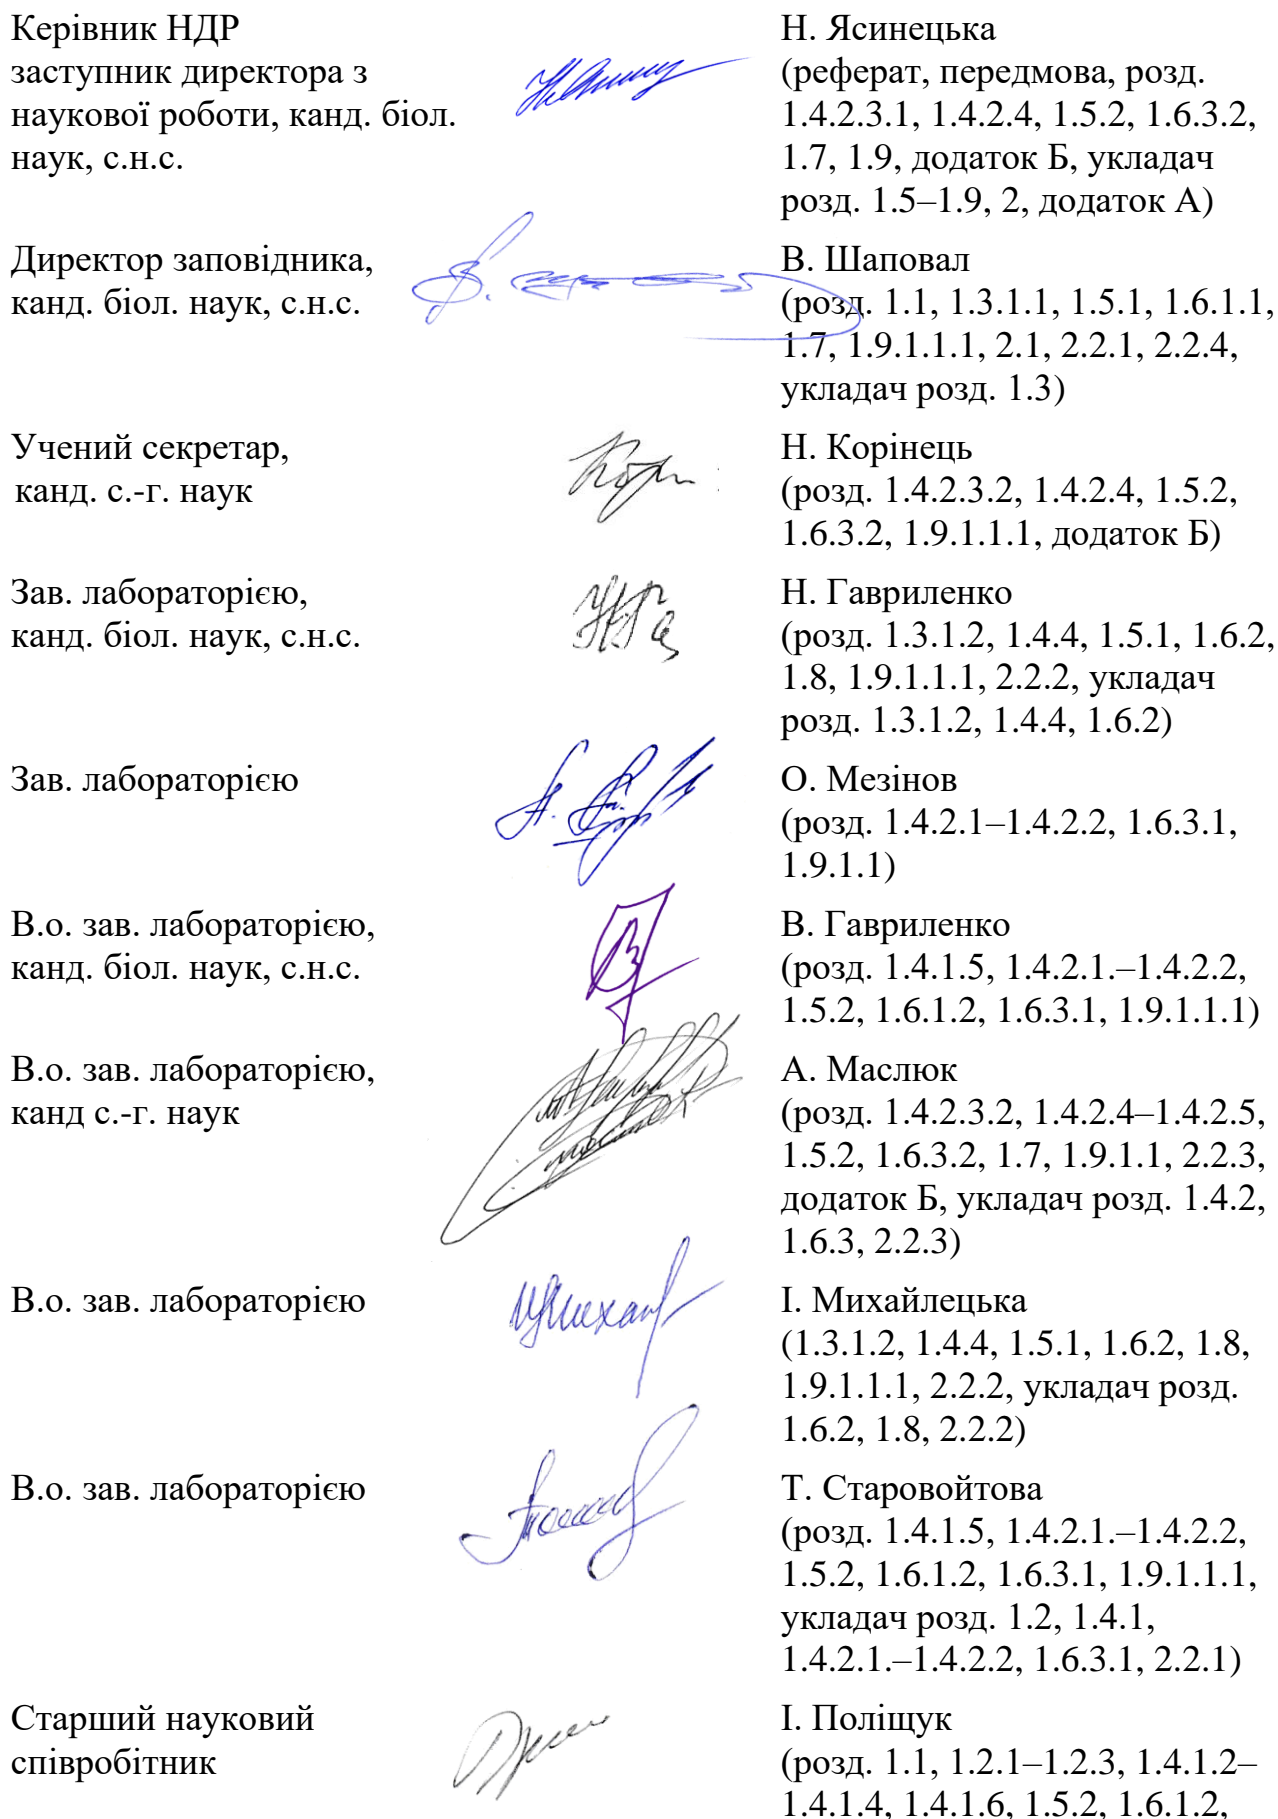 Керівник НДР
заступник директора з
наукової роботи, канд. біол.
наук, с.н.с.
Н. Ясинецька
(реферат, передмова, розд.
1.4.2.3.1, 1.4.2.4, 1.5.2, 1.6.3.2,
1.7, 1.9, додаток Б, укладач
розд. 1.5–1.9, 2, додаток А)
Директор заповідника,
канд. біол. наук, с.н.с.
В. Шаповал
(розд. 1.1, 1.3.1.1, 1.5.1, 1.6.1.1,
1.7, 1.9.1.1.1, 2.1, 2.2.1, 2.2.4,
укладач розд. 1.3)
Учений секретар,
канд. с.-г. наук
Н. Корінець
(розд. 1.4.2.3.2, 1.4.2.4, 1.5.2,
1.6.3.2, 1.9.1.1.1, додаток Б)
Зав. лабораторією,
канд. біол. наук, с.н.с.
Н. Гавриленко
(розд. 1.3.1.2, 1.4.4, 1.5.1, 1.6.2,
1.8, 1.9.1.1.1, 2.2.2, укладач
розд. 1.3.1.2, 1.4.4, 1.6.2)
Зав. лабораторією
О. Мезінов
(розд. 1.4.2.1–1.4.2.2, 1.6.3.1,
1.9.1.1)
В.о. зав. лабораторією,
канд. біол. наук, с.н.с.
В. Гавриленко
(розд. 1.4.1.5, 1.4.2.1.–1.4.2.2,
1.5.2, 1.6.1.2, 1.6.3.1, 1.9.1.1.1)
В.о. зав. лабораторією,
канд с.-г. наук
А. Маслюк
(розд. 1.4.2.3.2, 1.4.2.4–1.4.2.5,
1.5.2, 1.6.3.2, 1.7, 1.9.1.1, 2.2.3,
додаток Б, укладач розд. 1.4.2,
1.6.3, 2.2.3)
В.о. зав. лабораторією
І. Михайлецька
(1.3.1.2, 1.4.4, 1.5.1, 1.6.2, 1.8,
1.9.1.1.1, 2.2.2, укладач розд.
1.6.2, 1.8, 2.2.2)
В.о. зав. лабораторією
Т. Старовойтова
(розд. 1.4.1.5, 1.4.2.1.–1.4.2.2,
1.5.2, 1.6.1.2, 1.6.3.1, 1.9.1.1.1,
укладач розд. 1.2, 1.4.1,
1.4.2.1.–1.4.2.2, 1.6.3.1, 2.2.1)
Старший науковий
співробітник
І. Поліщук
(розд. 1.1, 1.2.1–1.2.3, 1.4.1.2–
1.4.1.4, 1.4.1.6, 1.5.2, 1.6.1.2,